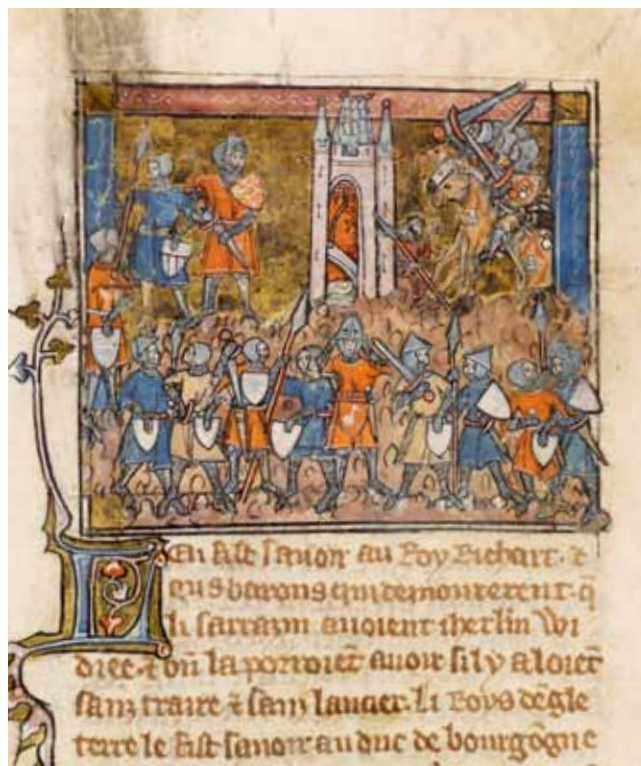 En fist sauoir au Roy Richart. ⁊
aus barons qui demourerent. q̄
li sarrazin auoient iherlm̄ Wi
diee. ⁊ bn̄ la porroiēt auoir sil y aloiēt
sanz traire ⁊ sanz lancier. Li Roys dēgle
terre le fist sauoir au duc de bourgogne